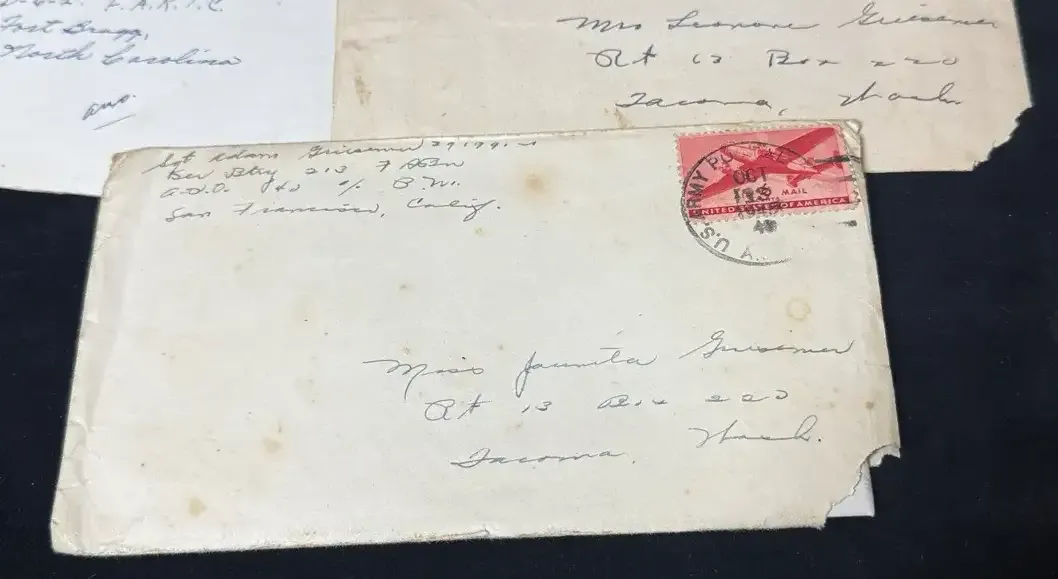 F.A.R.T.C.
Fort Bragg,
North Carolina
ans.
Mrs Leonore Griesemer
Rt 13 Box 220
Tacoma, Wash
Sgt Adam Griesemer
Ser Btry 213 F A Bn
A.P.O. 40 % P.M.
San Francisco, Calif.
U.S. ARMY POSTAL
OCT
MAIL
UNITED STATES OF AMERICA
Miss Juanita Griesemer
Rt 13 Box 220
Tacoma, Wash.